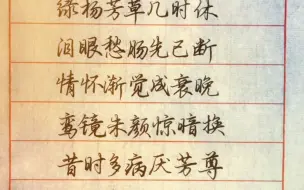 绿杨芳草几时休
泪眼愁肠先已断
情怀渐觉成衰晚
鸾镜朱颜惊暗换
昔时多病厌芳尊